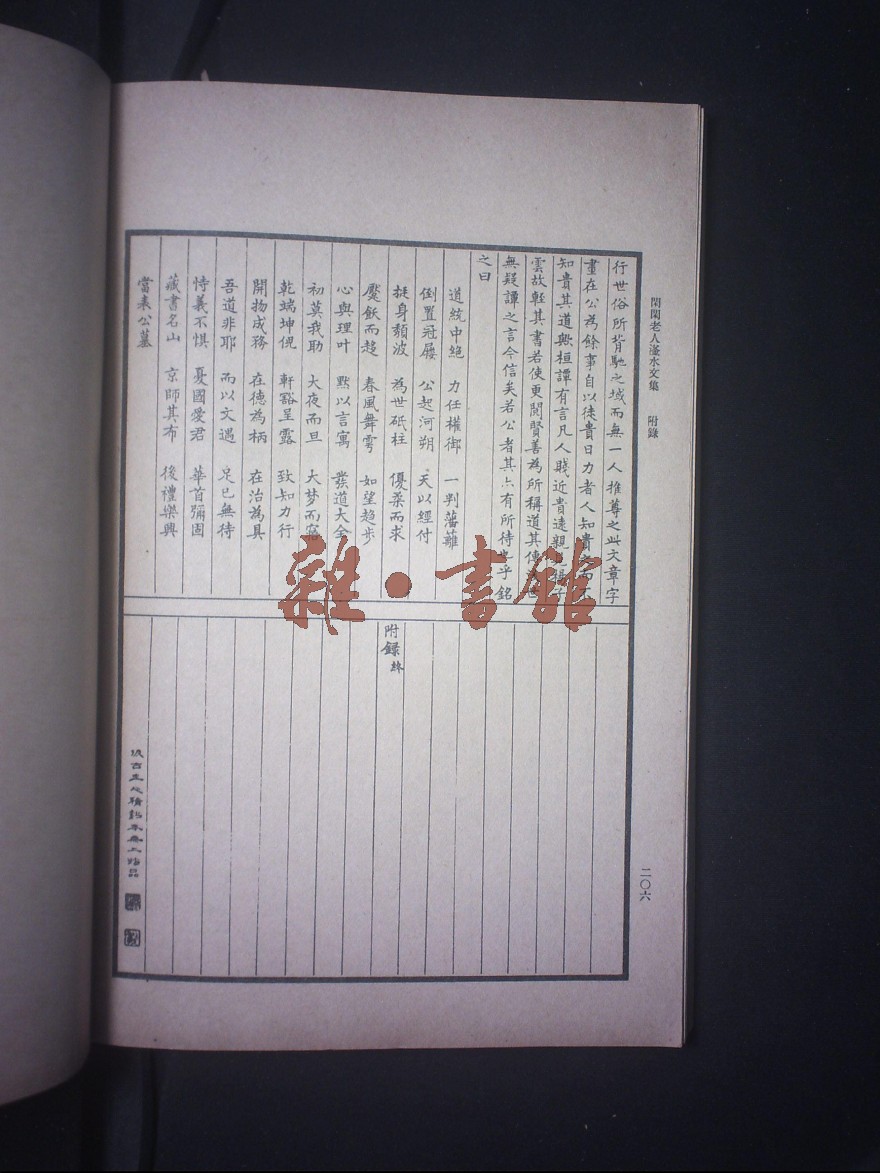 閑閑老人滏水文集 附錄
行世俗所背馳之域而無一人推尊之此文章字
畫在公為餘事自以徒貴日力者人知貴之而不
知貴其道歟桓譚有言凡人賤近貴遠親見揚子
雲故輕其書若使更閱賢善為所稱道其傳世
無疑譚之言今信矣若公者其亦有所待也乎銘
之曰
道統中絶 力任權御 一判藩籬
倒置冠屨 公起河朔 天以經付
挺身頹波 為世砥柱 優柔而求
饜飫而趨 春風舞雩 如望趨步
心與理叶 默以言寓 發道大全
初莫我助 大夜而旦 大夢而寤
乾端坤倪 軒豁呈露 致知力行
開物成務 在德為柄 在治為具
吾道非耶 而以文遇 足已無待
恃義不惧 憂國愛君 華首彌固
藏書名山 京師其布 後禮樂興
當表公墓
附錄終
二〇六
雜·書館